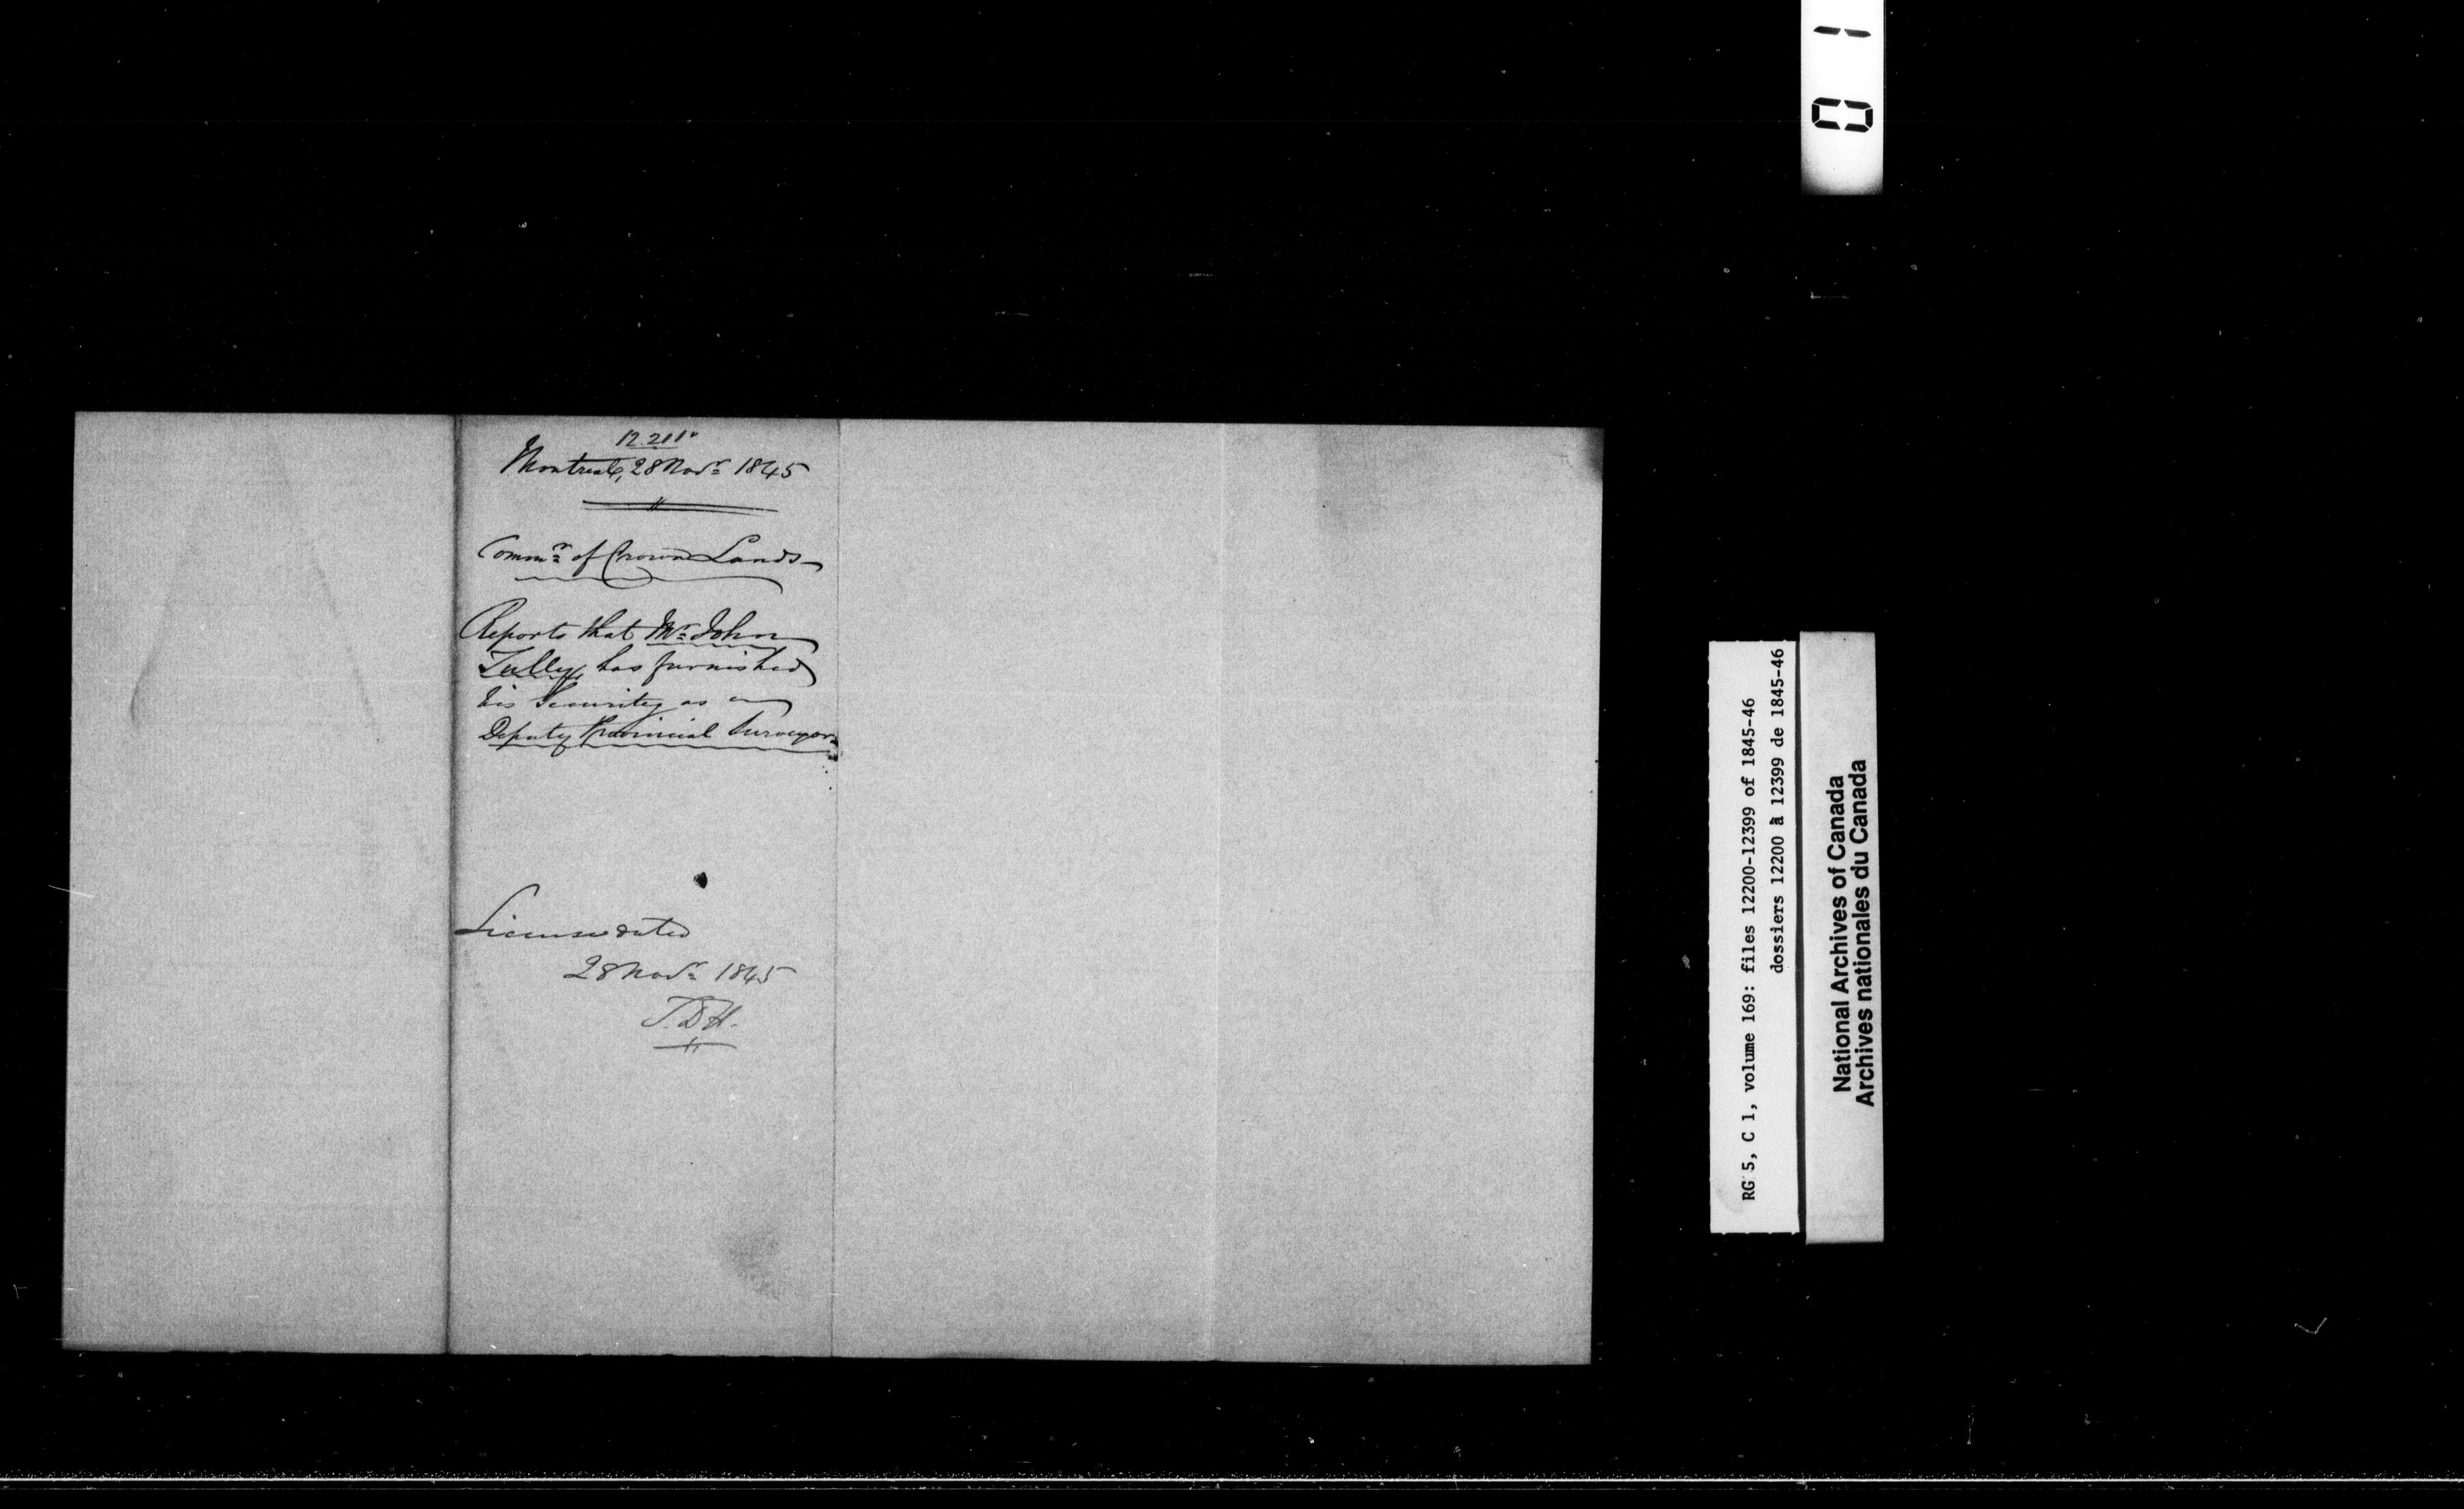 12.211
Montreal, 28 Novr 1845
Commr of Crown Lands
Reports that Mr John
Tully, has furnished
his Security as a
Deputy Provincial Surveyor.
License dated
28 Novr 1845
J.D.H.
RG 5, C 1, volume 169: files 12200-12399 of 1845-46
dossiers 12200 à 12399 de 1845-46
National Archives of Canada
Archives nationales du Canada
01